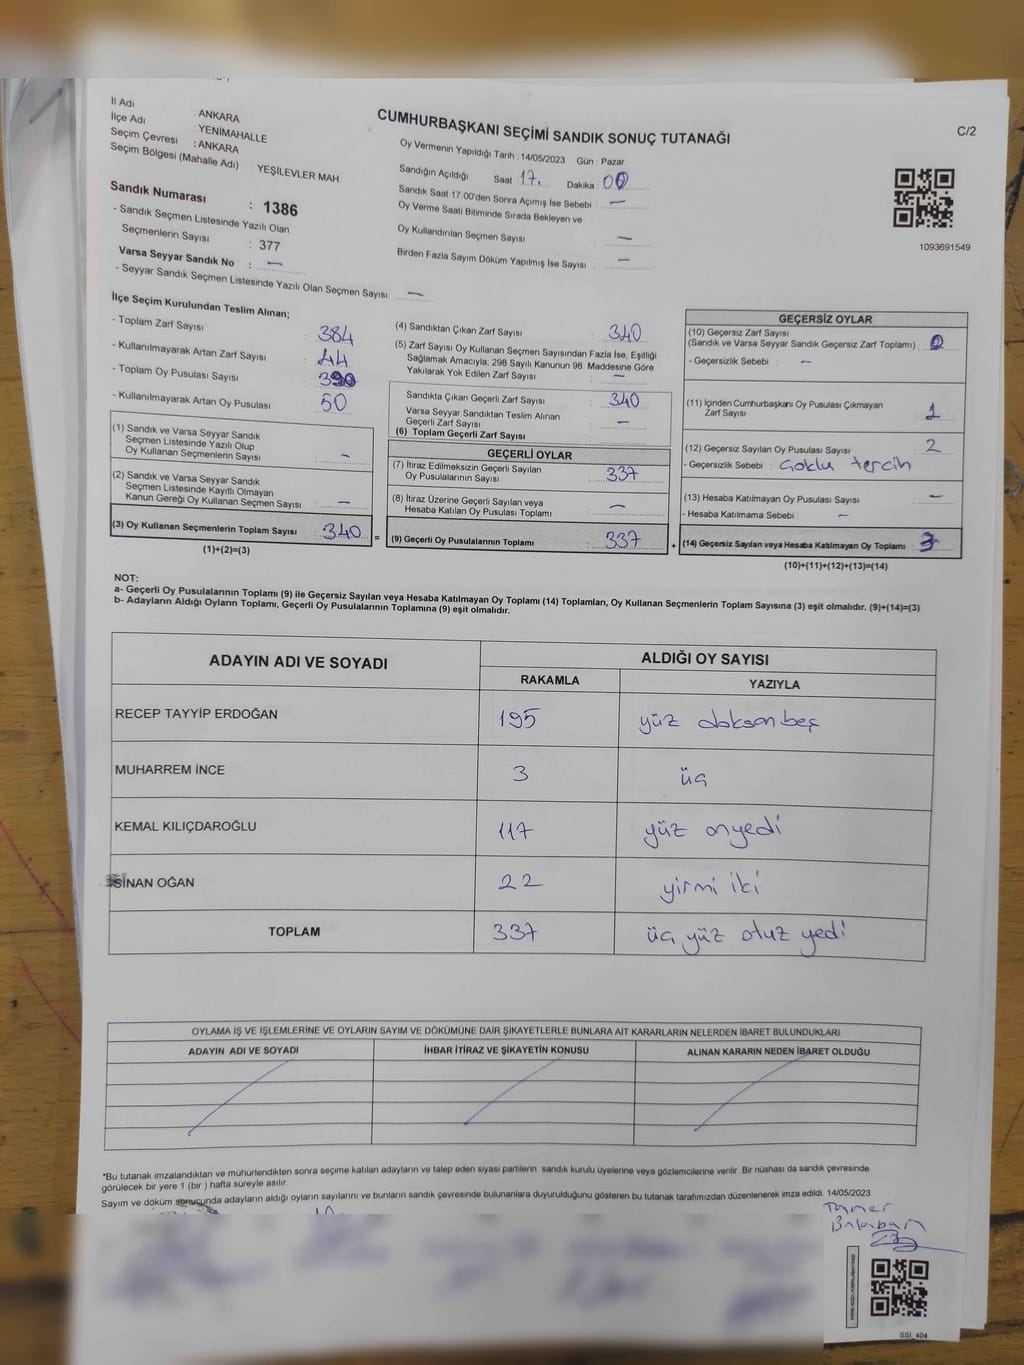 CUMHURBAŞKANI SEÇİMİ SANDIK SONUÇ TUTANAĞI
C/2
İl Adı : ANKARA
İlçe Adı : YENİMAHALLE
Seçim Çevresi : ANKARA
Seçim Bölgesi (Mahalle Adı) : YEŞİLEVLER MAH
Sandık Numarası : 1386
- Sandık Seçmen Listesinde Yazılı Olan
Seçmenlerin Sayısı : 377
Varsa Seyyar Sandık No : —
- Seyyar Sandık Seçmen Listesinde Yazılı Olan Seçmen Sayısı: —
Oy Vermenin Yapıldığı Tarih : 14/05/2023 Gün : Pazar
Sandığın Açıldığı Saat 17. Dakika : 00
Sandık Saat 17.00'den Sonra Açımış İse Sebebi : —
Oy Verme Saati Bitiminde Sırada Bekleyen ve
Oy Kullandırılan Seçmen Sayısı : —
Birden Fazla Sayım Döküm Yapılmış İse Sayısı : —
1093691549
İlçe Seçim Kurulundan Teslim Alınan;
- Toplam Zarf Sayısı : 384
- Kullanılmayarak Artan Zarf Sayısı : 44
- Toplam Oy Pusulası Sayısı : 390
- Kullanılmayarak Artan Oy Pusulası : 50
(1) Sandık ve Varsa Seyyar Sandık
Seçmen Listesinde Yazılı Olup
Oy Kullanan Seçmenlerin Sayısı : —
(2) Sandık ve Varsa Seyyar Sandık
Seçmen Listesinde Kayıtlı Olmayan
Kanun Gereği Oy Kullanan Seçmen Sayısı : —
(3) Oy Kullanan Seçmenlerin Toplam Sayısı : 340 =
(1)+(2)=(3)
(4) Sandıktan Çıkan Zarf Sayısı : 340
(5) Zarf Sayısı Oy Kullanan Seçmen Sayısından Fazla İse, Eşitliği
Sağlamak Amacıyla; 298 Sayılı Kanunun 98. Maddesine Göre
Yakılarak Yok Edilen Zarf Sayısı : —
Sandıkta Çıkan Geçerli Zarf Sayısı : 340
Varsa Seyyar Sandıktan Teslim Alınan
Geçerli Zarf Sayısı : —
(6) Toplam Geçerli Zarf Sayısı :
GEÇERLİ OYLAR
(7) İtiraz Edilmeksizin Geçerli Sayılan
Oy Pusulalarının Sayısı : 337
(8) İtiraz Üzerine Geçerli Sayılan veya
Hesaba Katılan Oy Pusulası Toplamı : —
(9) Geçerli Oy Pusulalarının Toplamı : 337 +
GEÇERSİZ OYLAR
(10) Geçersiz Zarf Sayısı
(Sandık ve Varsa Seyyar Sandık Geçersiz Zarf Toplamı) : 0
- Geçersizlik Sebebi : —
(11) İçinden Cumhurbaşkanı Oy Pusulası Çıkmayan
Zarf Sayısı : 1
(12) Geçersiz Sayılan Oy Pusulası Sayısı : 2
- Geçersizlik Sebebi : Çoklu tercih
(13) Hesaba Katılmayan Oy Pusulası Sayısı : —
- Hesaba Katılmama Sebebi : —
(14) Geçersiz Sayılan veya Hesaba Katılmayan Oy Toplamı : 3
(10)+(11)+(12)+(13)=(14)
NOT:
a- Geçerli Oy Pusulalarının Toplamı (9) ile Geçersiz Sayılan veya Hesaba Katılmayan Oy Toplamı (14) Toplamları, Oy Kullanan Seçmenlerin Toplam Sayısına (3) eşit olmalıdır. (9)+(14)=(3)
b- Adayların Aldığı Oyların Toplamı, Geçerli Oy Pusulalarının Toplamına (9) eşit olmalıdır.
ADAYIN ADI VE SOYADI ALDIĞI OY SAYISI
RAKAMLA YAZIYLA
RECEP TAYYİP ERDOĞAN 195 yüz doksan beş
MUHARREM İNCE 3 üç
KEMAL KILIÇDAROĞLU 117 yüz onyedi
SİNAN OĞAN 22 yirmi iki
TOPLAM 337 üç yüz otuz yedi
OYLAMA İŞ VE İŞLEMLERİNE VE OYLARIN SAYIM VE DÖKÜMÜNE DAİR ŞİKAYETLERLE BUNLARA AİT KARARLARIN NELERDEN İBARET BULUNDUKLARI
ADAYIN ADI VE SOYADI İHBAR İTİRAZ VE ŞİKAYETİN KONUSU ALINAN KARARIN NEDEN İBARET OLDUĞU
*Bu tutanak imzalandıktan ve mühürlendikten sonra seçime katılan adayların ve talep eden siyasi partilerin sandık kurulu üyelerine veya gözlemcilerine verilir .Bir nüshası da sandık çevresinde
görülecek bir yere 1 (bir ) hafta süreyle asılır.
Sayım ve döküm sonucunda adayların aldığı oyların sayılarını ve bunların sandık çevresinde bulunanlara duyurulduğunu gösteren bu tutanak tarafımızdan düzenlenerek imza edildi. 14/05/2023
Taner
Balaban
SSI_404